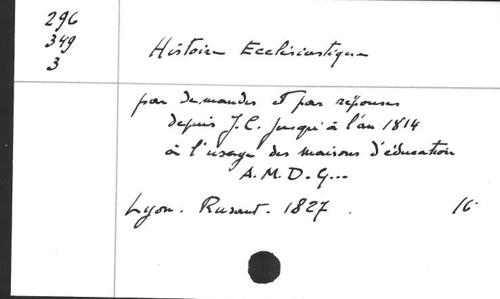 296
349
3
Histoire Ecclésiastique
par demandes & par réponses
depuis J.C. jusqu'à l'an 1814
à l'usage des maisons d'éducation
A.M.D.G...
Lyon. Rusand. 1827. 16